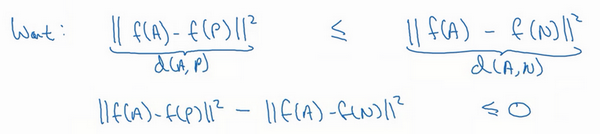 Want: || f(A) - f(P) ||² ≤ || f(A) - f(N) ||²
d(A, P) d(A, N)
|| f(A) - f(P) ||² - || f(A) - f(N) ||² ≤ 0